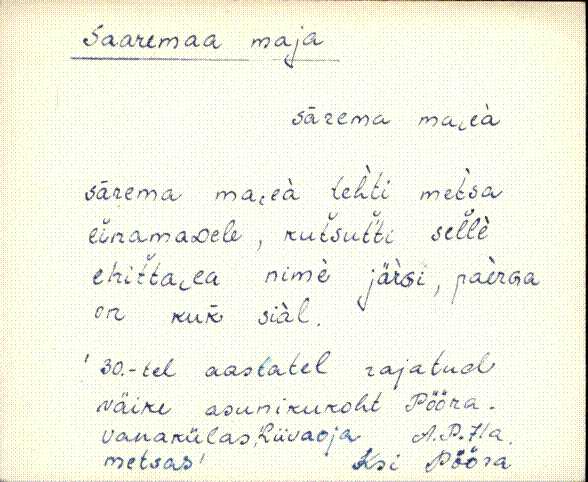 Saaremaa maja
sārema maᴉeà
sārema maᴉeà tèhti mètsa
eìnamaᴅele, kut̆sut̆ti sel̆lè
ehit̆taᴉea nimè järGi, paèrGa
on kuk̆ siàl.
'30.-tel aastatel rajatud
väike asunikukoht Pööra-
vanakülas, Liivaoja A.P. 71a.
metsas' Ksi Pööra